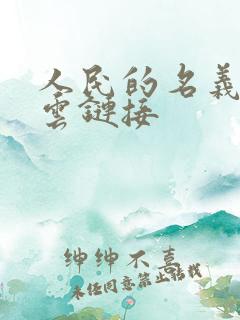 人民的名義
雲鏈接
紳紳不喜
未經同意禁止轉載